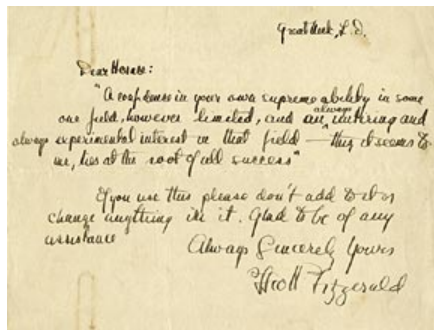 Great Neck, L.I.
Dear Horace:
"A confidence in your own supreme ability in some
one field, however limited, and an always untiring and
always experimental interest in that field — this it seems to
me, lies at the root of all success"
If you use this please don't add to it or
change anything in it. Glad to be of any
assistance
Always Sincerely Yours
F Scott Fitzgerald